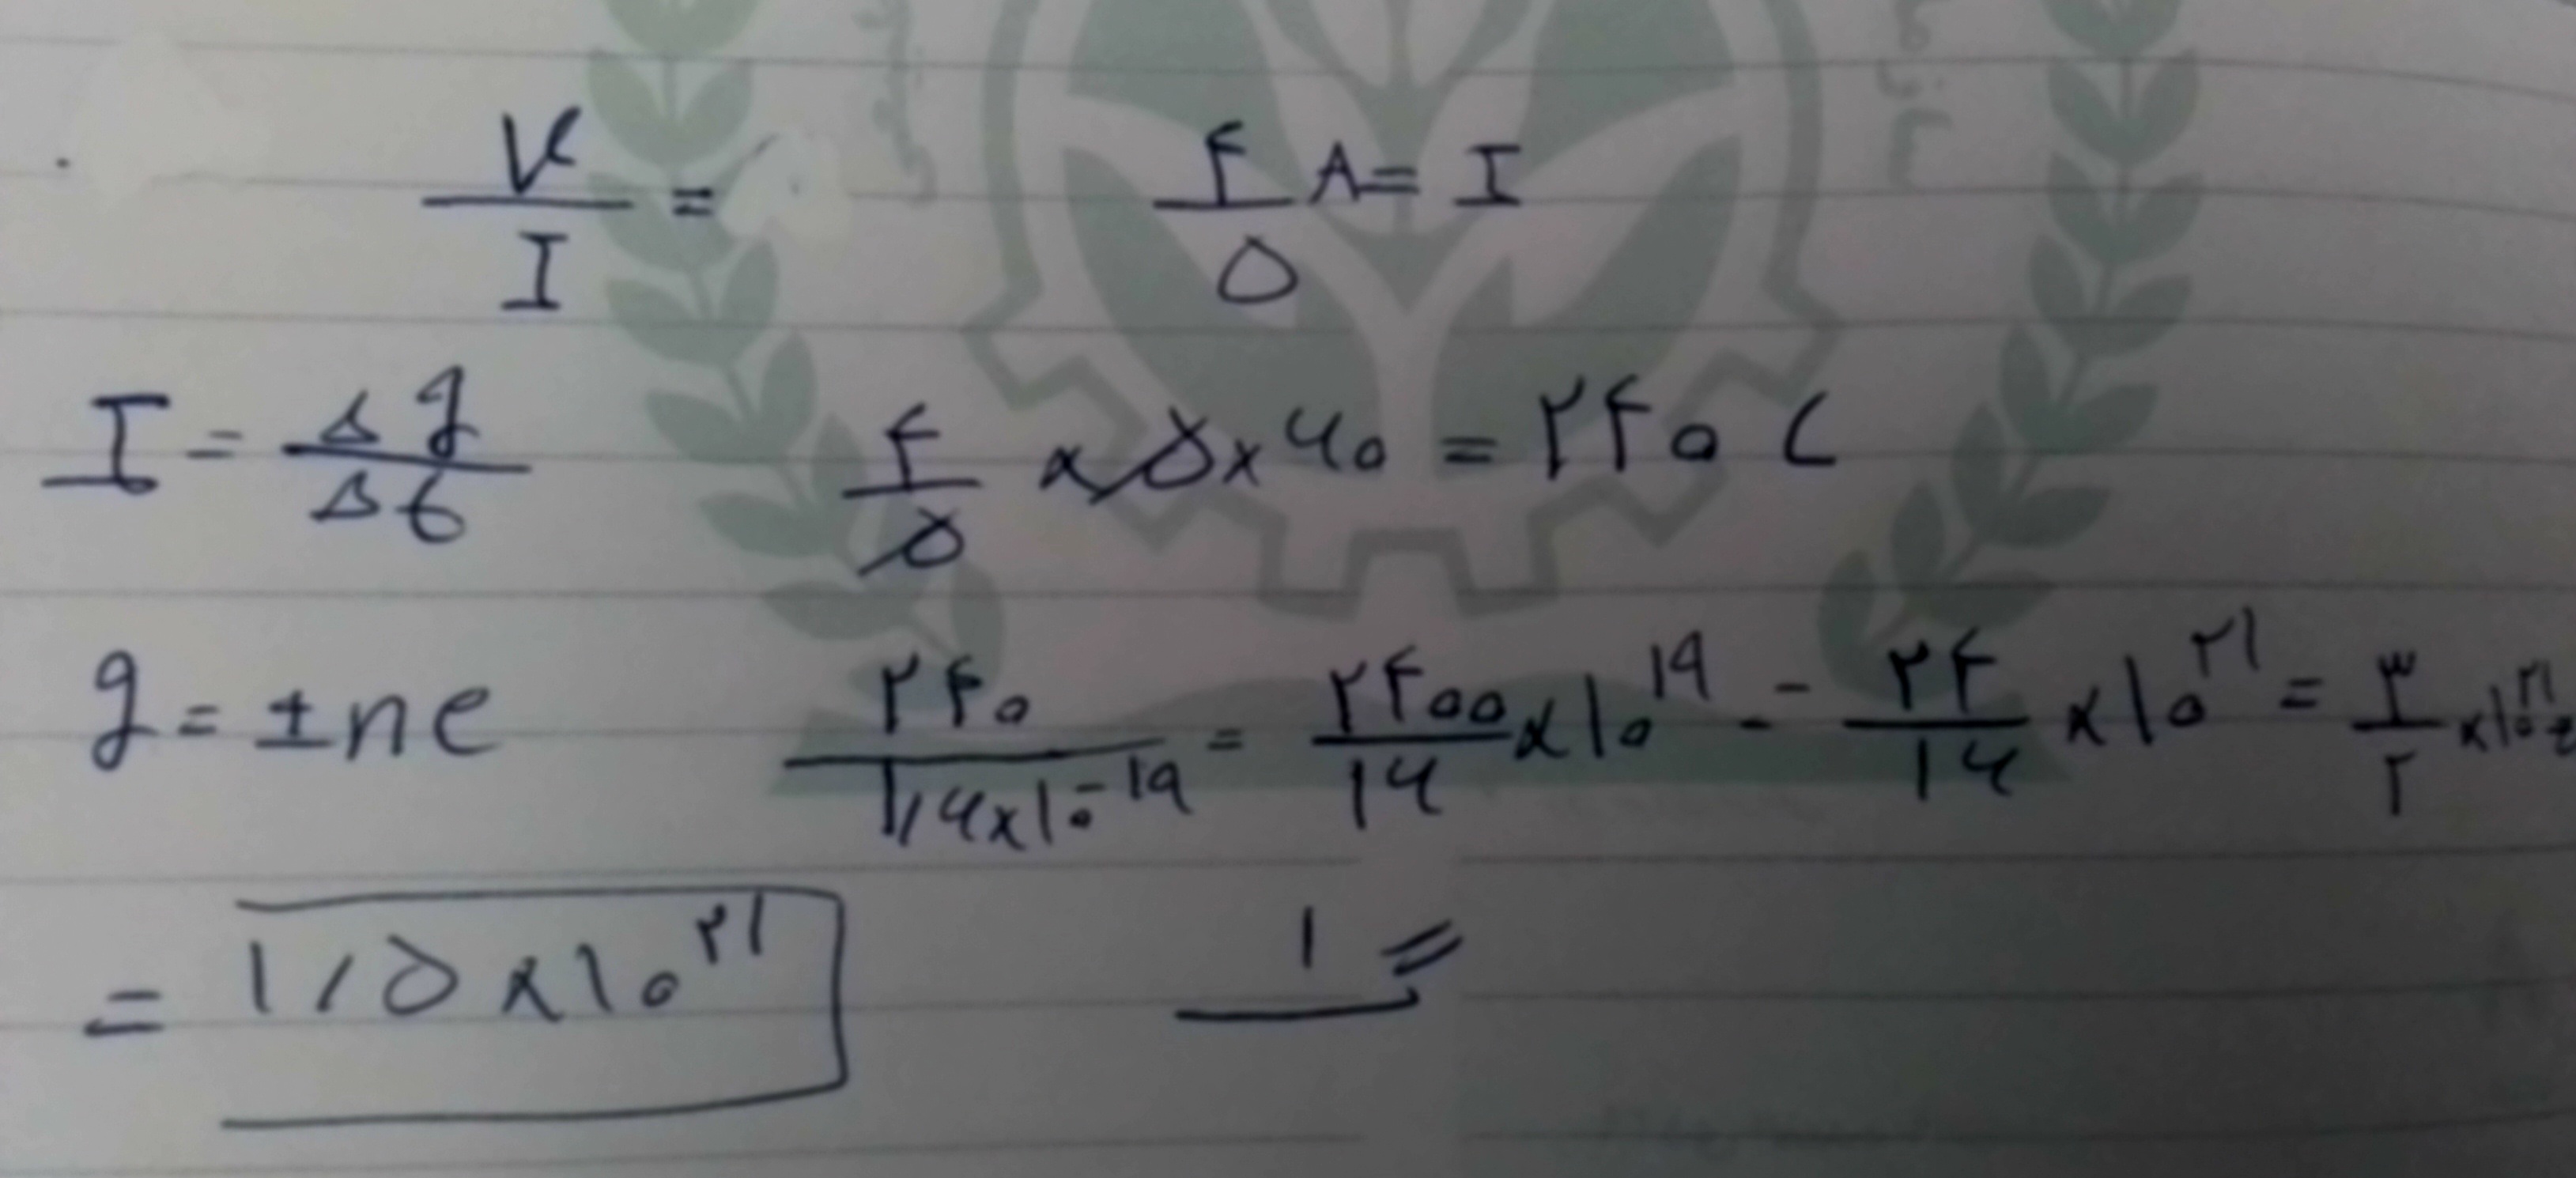 V/I = ۴/۵ A = I
I = Δq/Δt ۴/۵ × ۵ × ۶۰ = ۲۴۰ C
q = ±ne ۲۴۰/۱٫۶×۱۰^-۱۹ = ۲۴۰۰/۱۶ ×۱۰^۱۹ = ۲۴/۱۶ ×۱۰^۲۱ = ۳/۲ ×۱۰^۲۱ =
= ۱٫۵ ×۱۰^۲۱ ۱